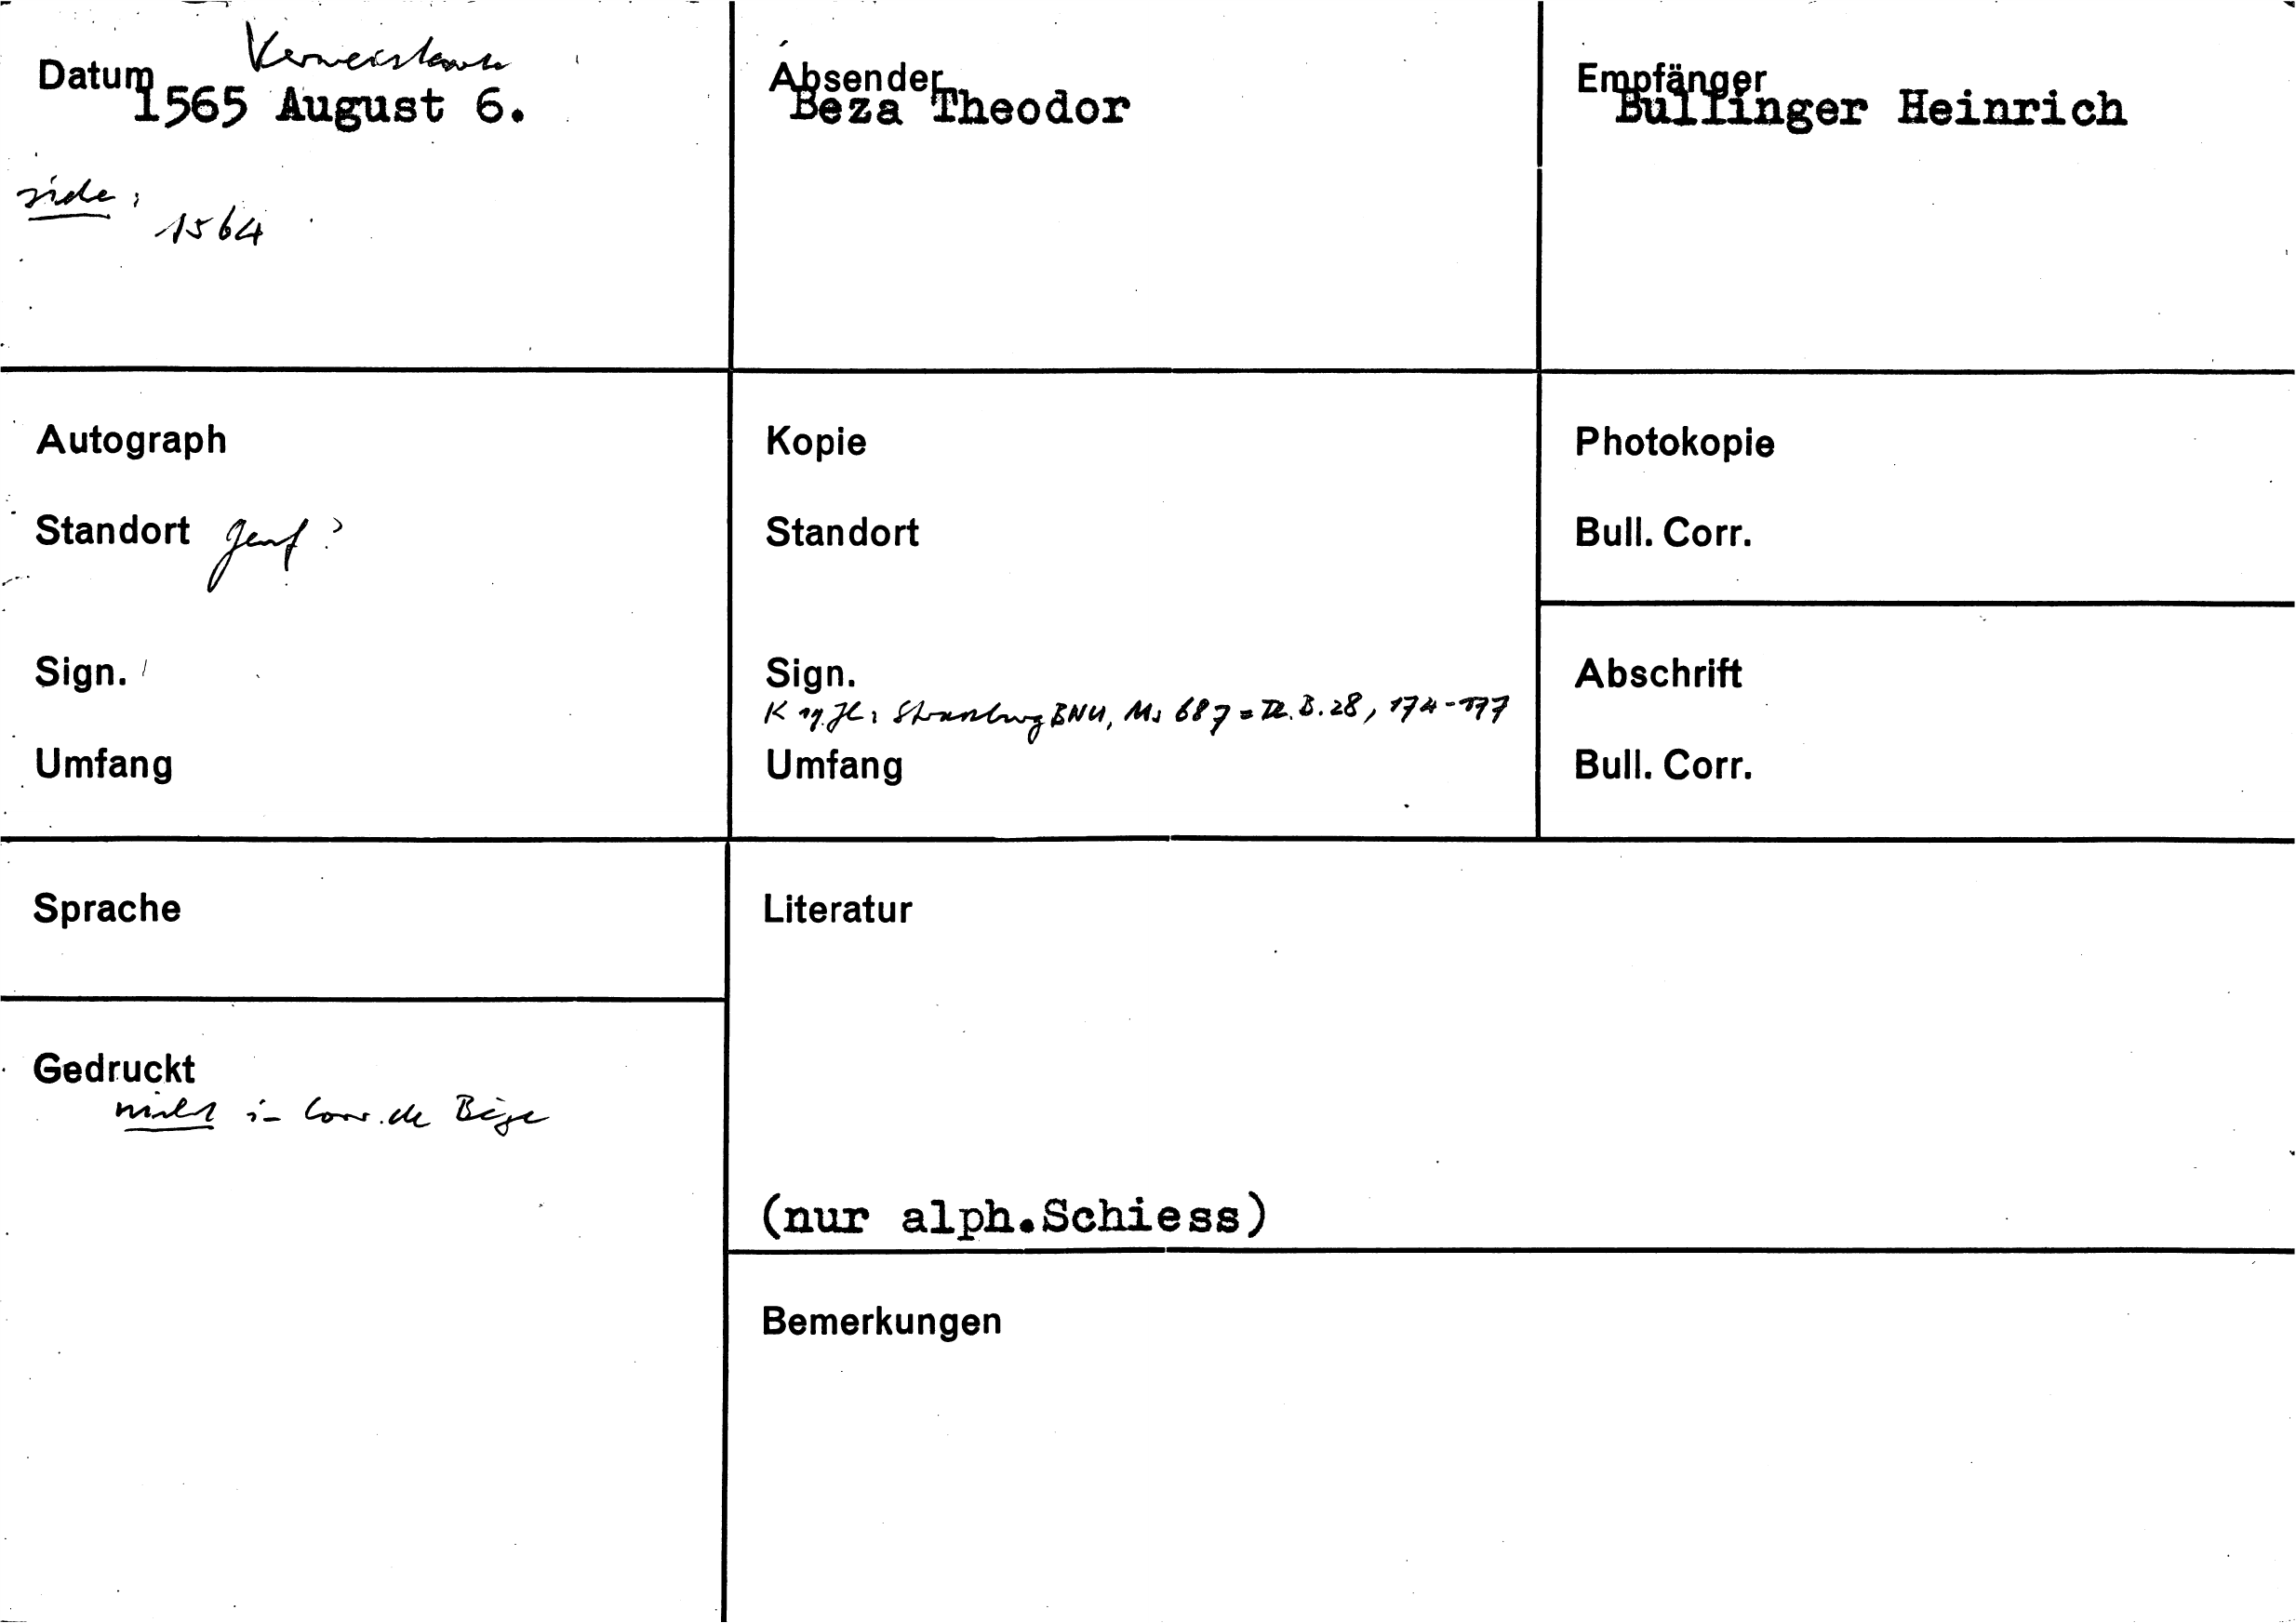 Verweiskarte
Datum
1565 August 6.
vide:
1564
Absender
Beza Theodor
Empfänger
Bullinger Heinrich
Autograph
Standort Genf?
Sign.
Umfang
Kopie
Standort
Sign.
K 17. Jh: Strassburg BNU, Ms 687 = Th. B. 28, 174-177
Umfang
Photokopie
Bull. Corr.
Abschrift
Bull. Corr.
Sprache
Gedruckt
nicht in Corr. de Bèze
Literatur
(nur alph.Schiess)
Bemerkungen